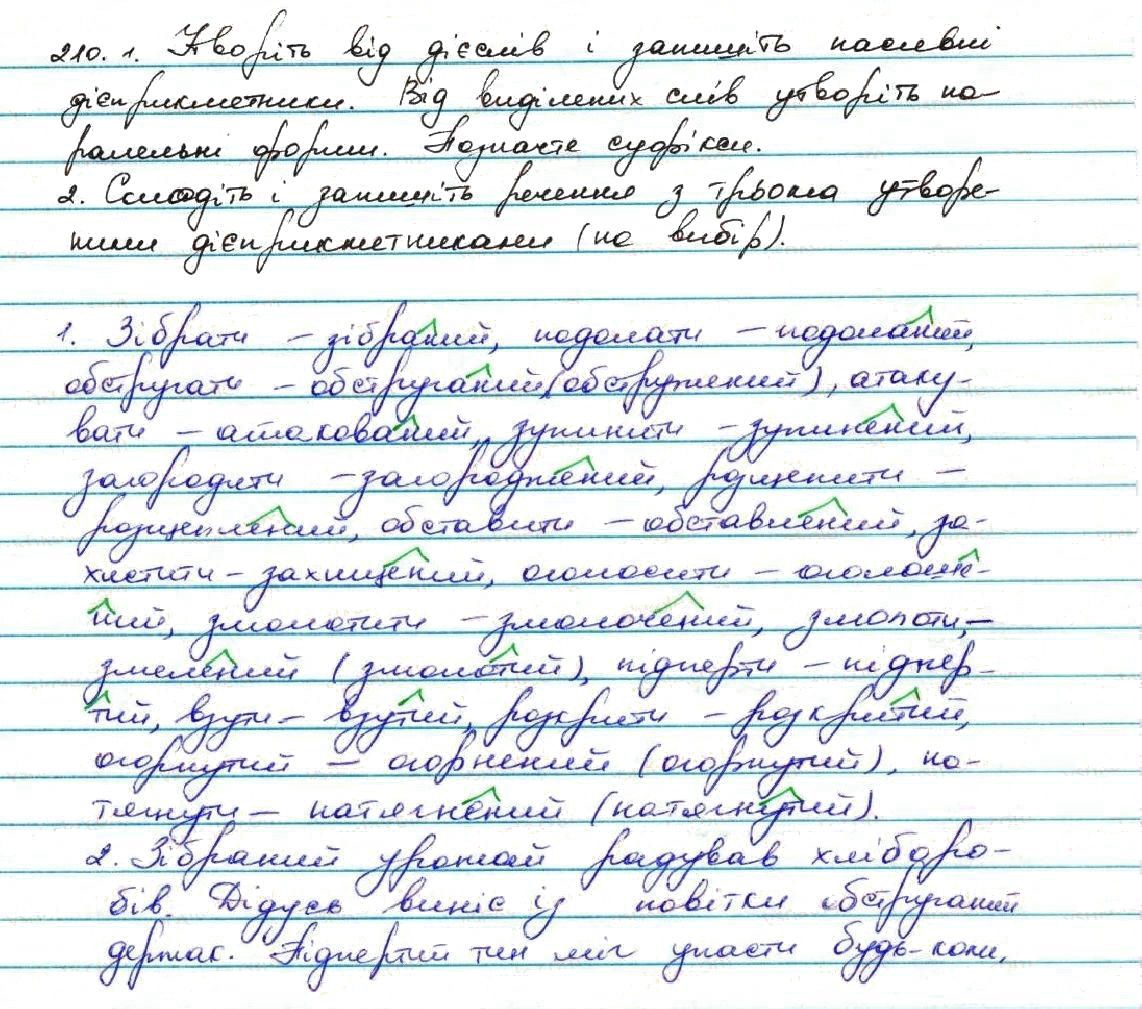 210. 1. Утворіть від дієслів і запишіть пасивні
дієприкметники. Від виділених слів утворіть па-
ралельні форми. Позначте суфікси.
2. Складіть і запишіть речення з трьома утворе-
ними дієприкметниками (на вибір).
1. Зібрати – зібраний, подолати – подоланий,
обстругати – обструганий (обстружений), атаку-
вати – атакований, зупинити – зупинений,
загородити – загороджений, розщепити –
розщеплений, обставити – обставлений, за-
хистити – захищений, оголосити – оголоше-
ний, змолотити – змолочений, змолоти, –
змелений (змолотий), підперти – підпер-
тий, взути – взутий, розкрити – розкритий,
огорнутий – огорнений (огорнутий), на-
тягнути – натягнений (натягнутий).
2. Зібраний урожай радував хліборо-
бів. Дідусь виніс із повітки обструганий
держак. Підпертий тин міг упасти будь-коли.